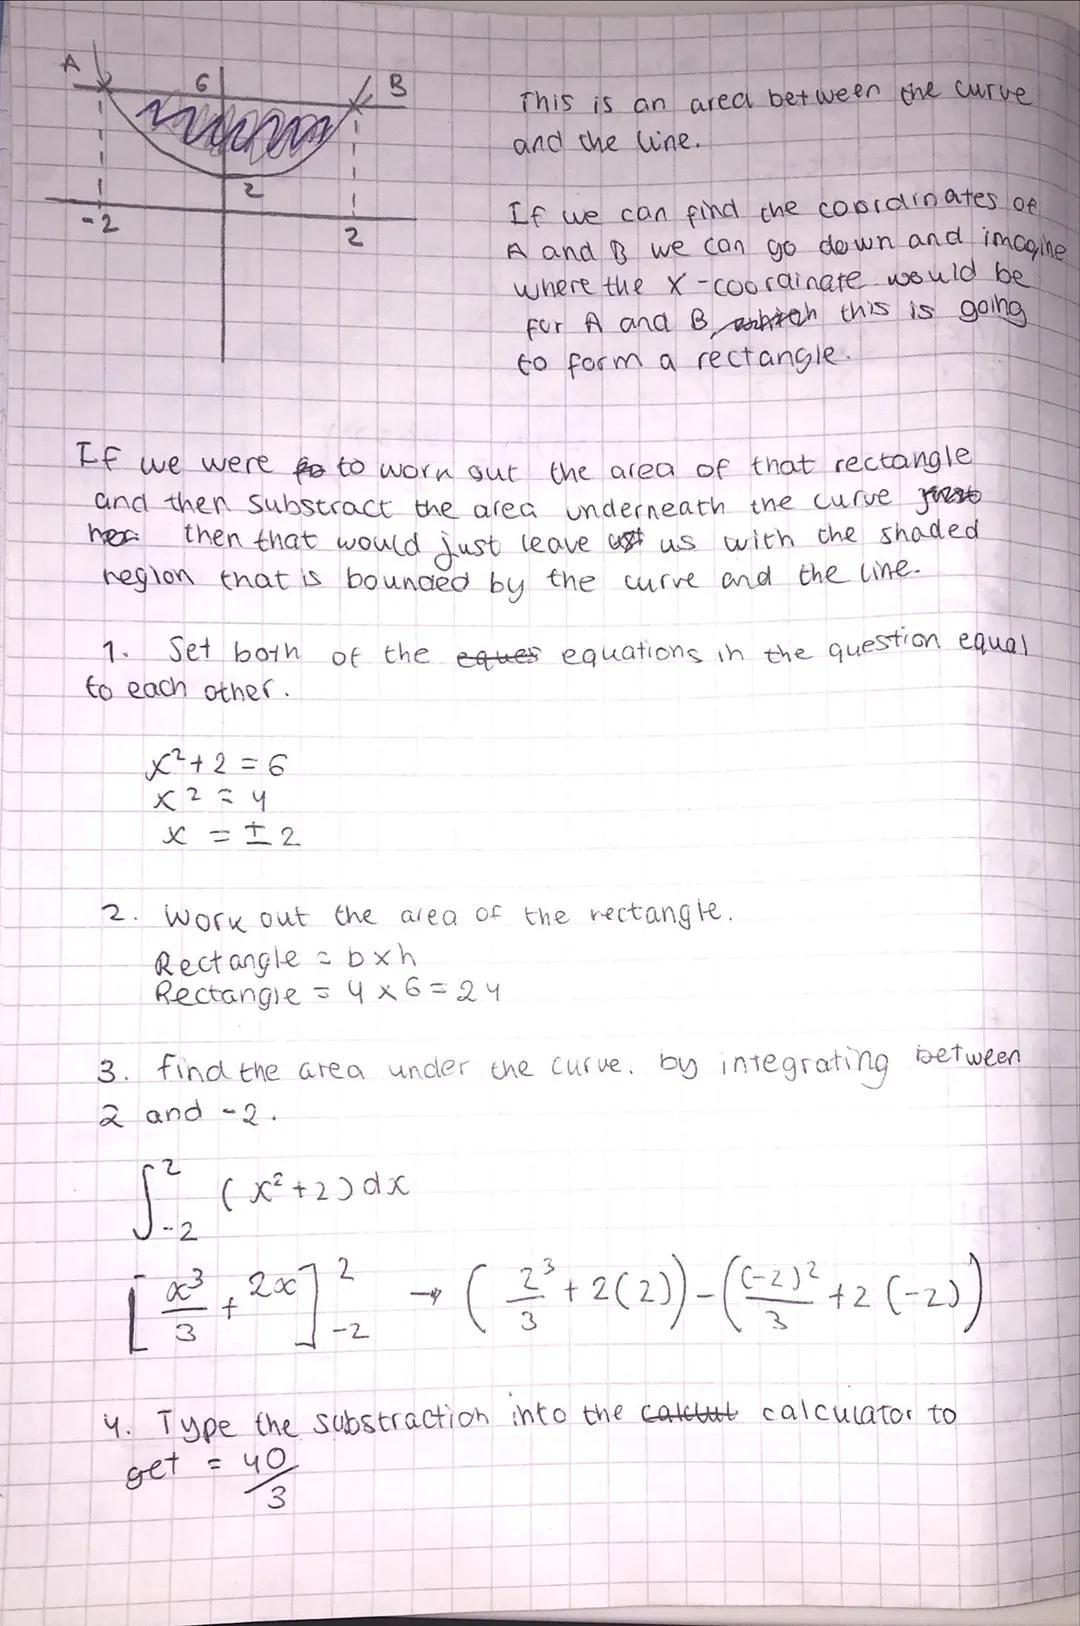 A 6 B
2
-2 2
This is an area between the curve
and the line.
If we can find the coordinates of
A and B we can go down and imagine
where the x-coordinate would be
for A and B, which this is going
to form a rectangle.
If we were to to work out the area of that rectangle
and then substract the area underneath the curve
then that would just leave us with the shaded
region that is bounded by the curve and the line.
1. Set both of the eques equations in the question equal
to each other.
x²+2=6
x²=4
x = ±2
2. Work out the area of the rectangle.
Rectangle = b×h
Rectangle = 4×6=24
3. find the area under the curve. by integrating between
2 and -2.
∫₋₂² (x²+2)dx
[x³/3 + 2x]₋₂² → (2³/3 + 2(2)) - ((-2)²/3 + 2(-2))
4. Type the substraction into the calclut calculator to
get = 40/3